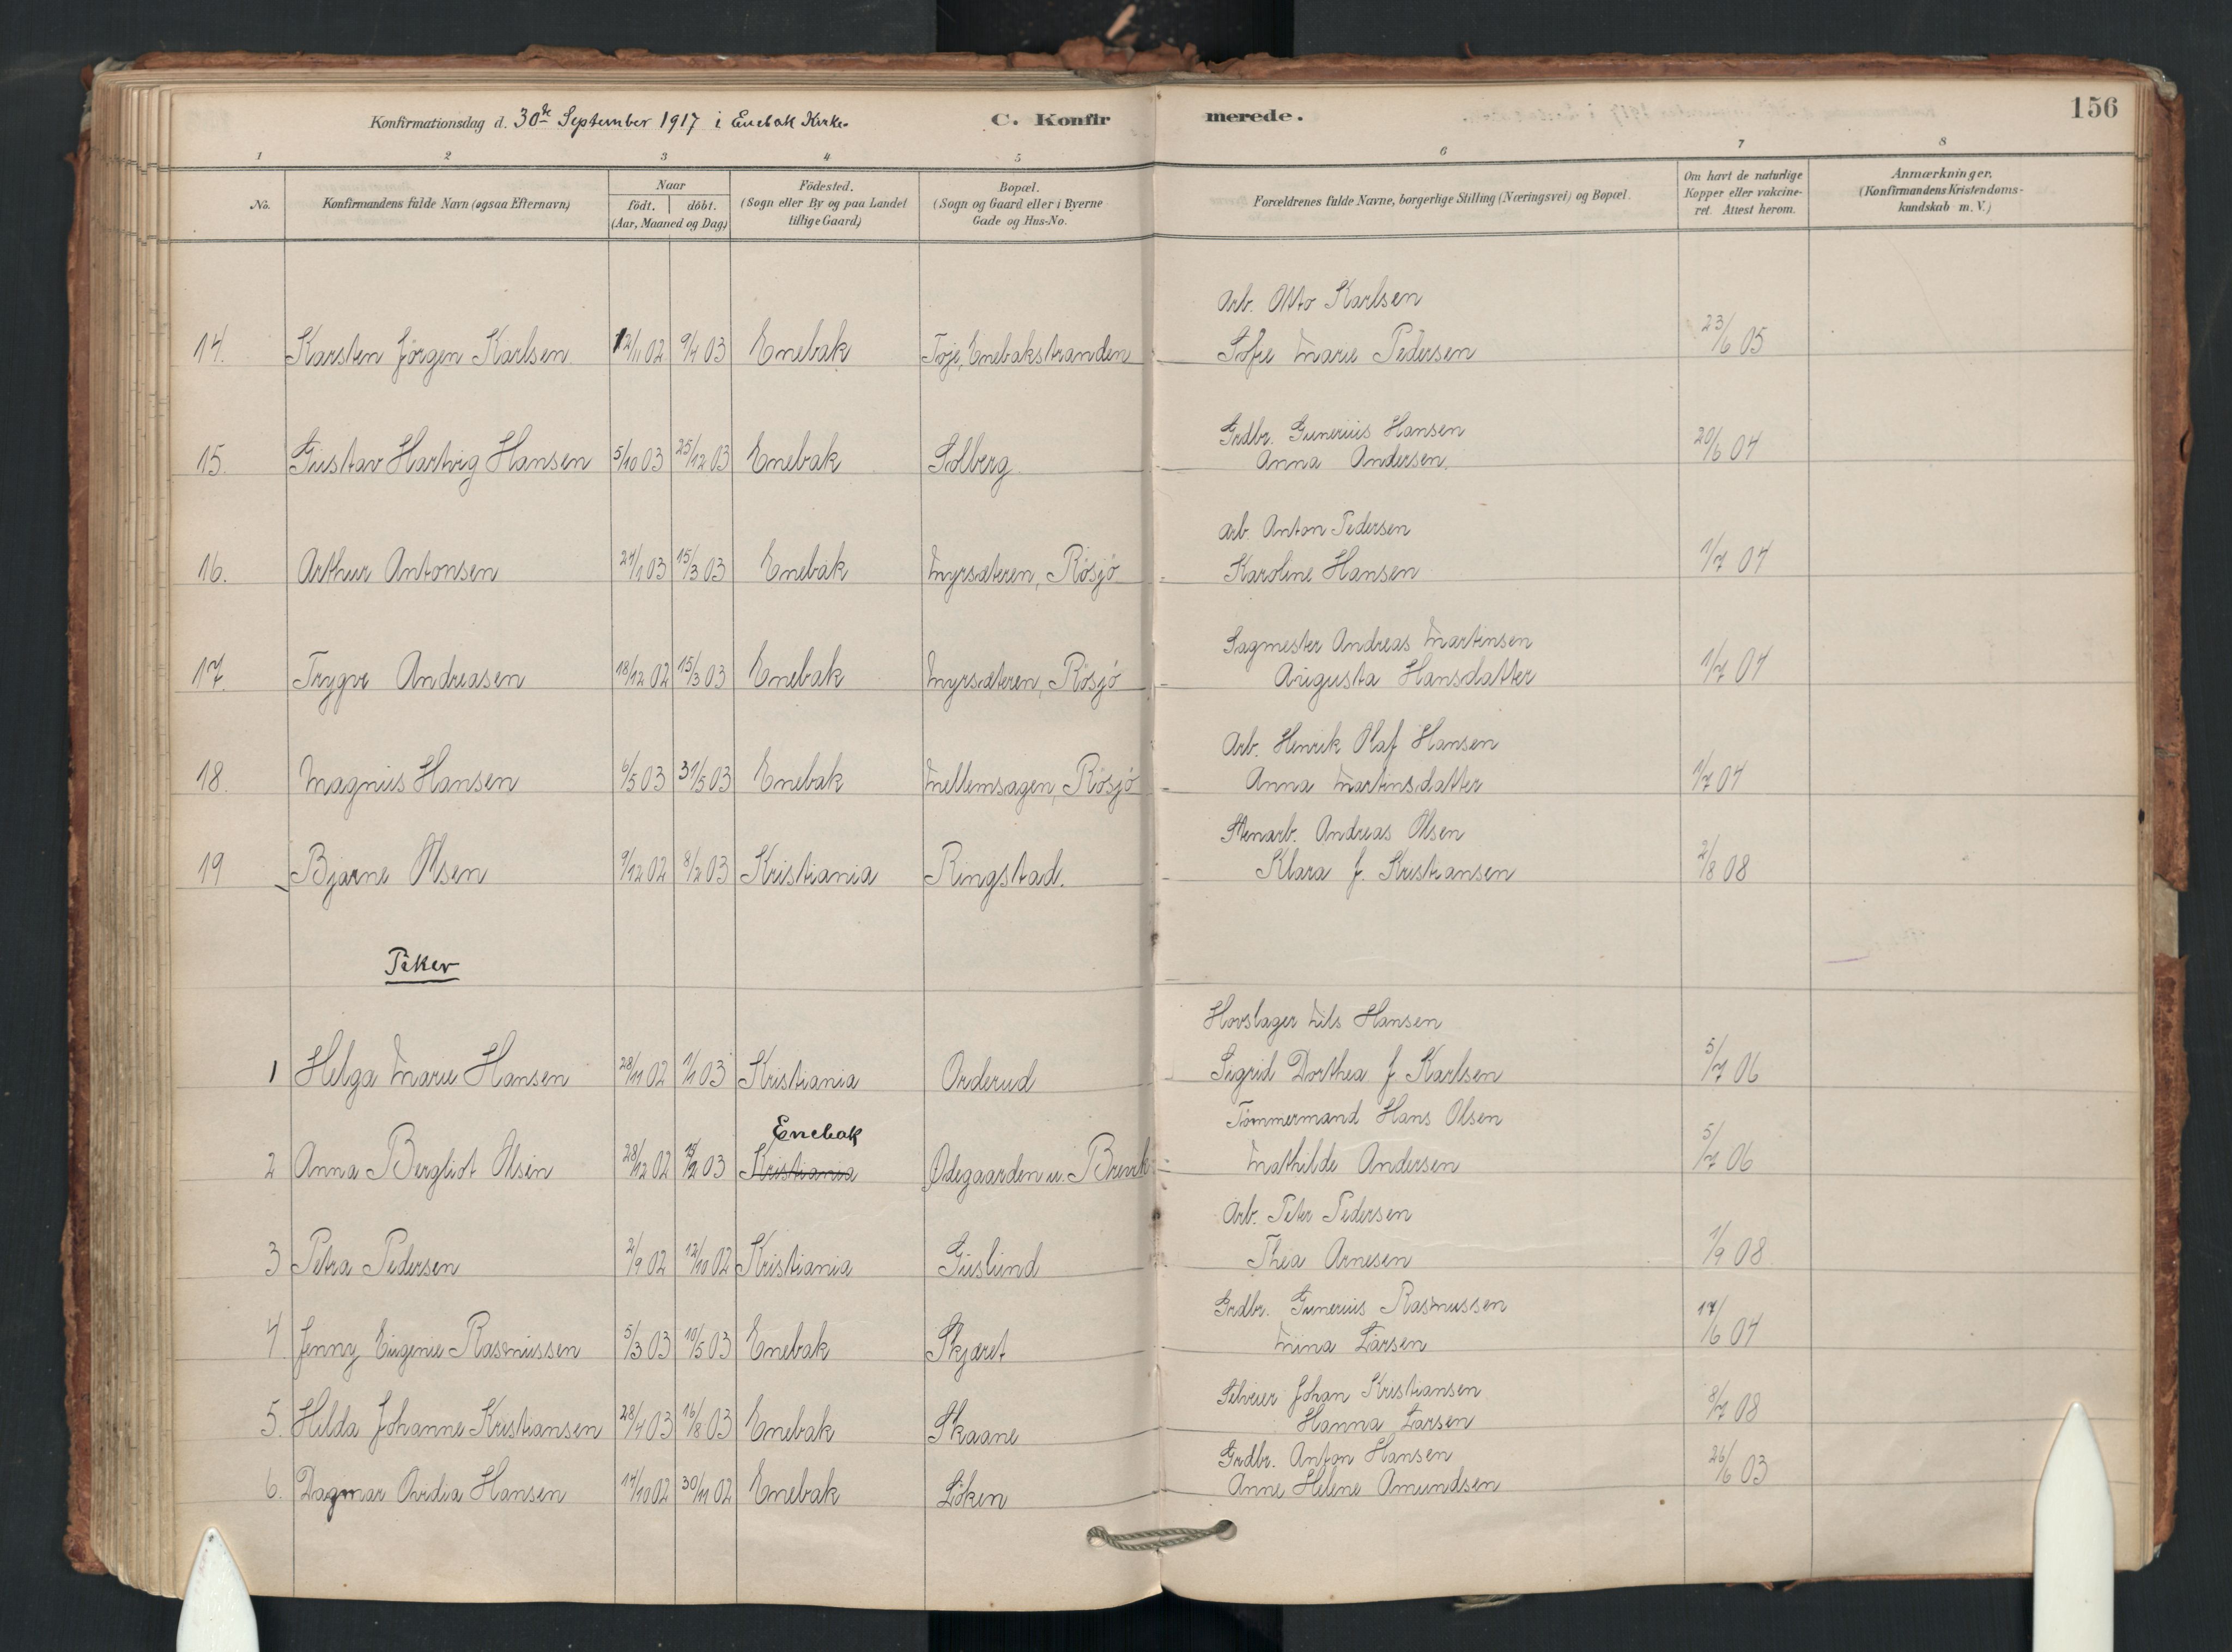 156
Konfirmationsdag d. 30te September 1917 i Enebak Kirke.
C. Konfirmerede.
1 2 3 4 5 6 7 8
No.
Konfirmandens fulde Navn (ogsaa Efternavn)
Naar
födt. döbt.
(Aar, Maaned og Dag)
Födested.
(Sogn eller By og paa Landet
tillige Gaard)
Bopæl.
(Sogn og Gaard eller i Byerne
Gade og Hus-No.
Forældrenes fulde Navne, borgerlige Stilling (Næringsvei) og Bopæl.
Om havt de naturlige
Kopper eller vakcine-
ret. Attest herom.
Anmærkninger.
(Konfirmandens Kristendoms-
kundskab m. V.)
Arb. Otto Karlsen
14. Karsten Jörgen Karlsen 12/11 02 9/4 03 Enebak Töje, Enebakstranden Sofie Marie Pedersen 23/6 05
Grdbr. Gunerius Hansen
15. Gustav Hartvig Hansen 5/10 03 25/12 03 Enebak Solberg Anna Andersen 20/6 04
Arb. Anton Pedersen
16. Arthur Antonsen 24/1 03 15/3 03 Enebak Myrsæteren, Rösjö Karoline Hansen 1/7 04
Sagmester Andreas Martinsen
17. Trygve Andreasen 18/12 02 15/3 03 Enebak Myrsæteren, Rösjö Augusta Hansdatter 1/7 04
Arb. Henrik Olaf Hansen
18. Magnus Hansen 6/5 03 31/5 03 Enebak Mellemsagen, Rösjö Anna Martinsdatter 1/7 04
Stenarb. Andreas Olsen
19 Bjarne Olsen 9/12 02 8/2 03 Kristiania Ringstad. Klara f. Kristiansen 2/8 08
Piker
Hovslager Nils Hansen
1 Helga Marie Hansen 28/11 02 1/1 03 Kristiania Orderud Sigrid Dorthea f Karlsen 5/7 06
Enebak Tömmermand Hans Olsen
2 Anna Bergliot Olsen 28/12 02 03 Kristiania Ødegaarden u. Mathilde Andersen 5/7 06
Arb. Peter Pedersen
3 Petra Pedersen 2/9 02 12/10 02 Kristiania Guslund Thea Arnesen 1/9 08
Grdbr. Gunerius Rasmussen
4 Jenny Eugenie Rasmussen 5/3 03 10/5 03 Enebak Skjæret Mina Larsen 17/6 04
Selveier Johan Kristiansen
5. Hilda Johanne Kristiansen 28/4 03 16/8 03 Enebak Skaane Hanna Larsen 8/7 08
Grdbr. Anton Hansen
6. Dagmar Ovidia Hansen 17/10 02 30/11 02 Enebak Löken Anne Helene Amundsen 26/6 03